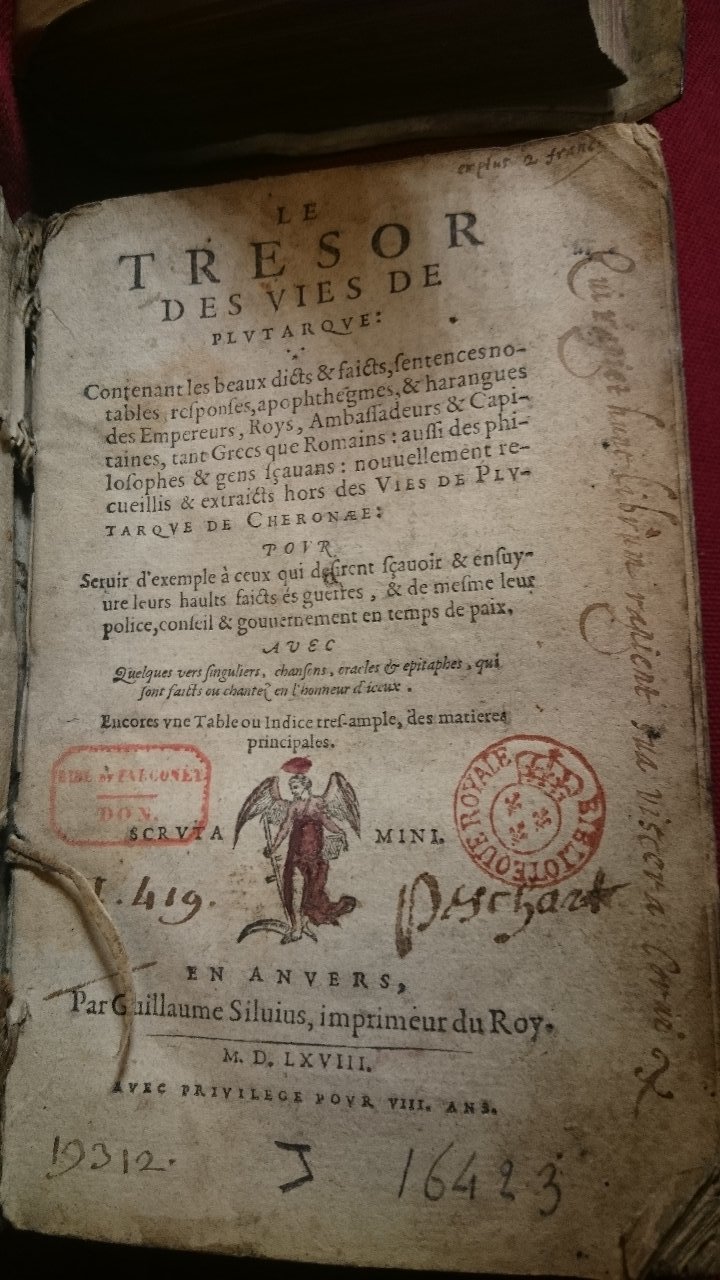 en plus 2 franc
LE
TRESOR
DES VIES DE
PLVTARQVE:
Contenant les beaux dicts & faicts, ſentences no-
tables, reſponſes, apophthegmes, & harangues
des Empereurs, Roys, Ambaſſadeurs & Capi-
taines, tant Grecs que Romains: auſſi des phi-
loſophes & gens ſçauans: nouuellement re-
cueillis & extraicts hors des VIES DE PLV-
TARQVE DE CHERONÆE:
POVR
Seruir d'exemple à ceux qui deſirent ſçauoir & enſuy-
ure leurs haults faicts és guerres, & de meſme leur
police, conſeil & gouuernement en temps de paix.
AVEC
Quelques vers ſinguliers, chanſons, oracles & epitaphes, qui
ſont faicts ou chantez en l'honneur d'iceux.
Encores vne Table ou Indice treſ-ample, des matieres
principales.
BIBL DE FALCONET
DON.
BIBLIOTEQUE ROYALE
SCRVTAMINI.
J. 419.
Deschart
EN ANVERS,
Par Guillaume Siluius, imprimeur du Roy.
M. D. LXVIII.
AVEC PRIVILEGE POVR VIII. ANS.
19312.
J
16423
Qui rapiet hunc librum rapient sua viscera